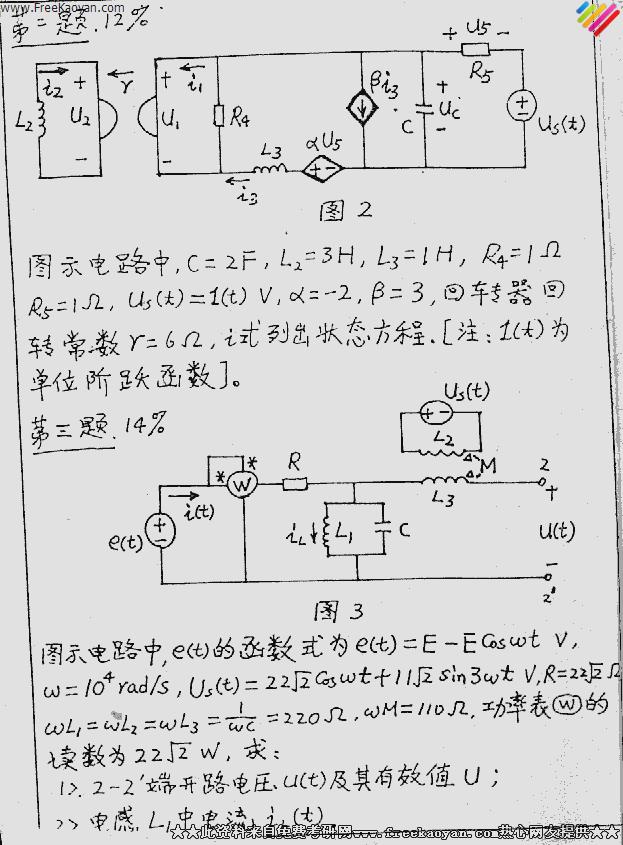 www.FreeKaoyan.com
第二题.12%
+ U5 -
R5
i2 + r + i1 βi3 + 
L2 U2 U1 R4 C Uc Us(t)
- - L3 αU5 -
i3 + -
图2
图示电路中,C=2F,L2=3H,L3=1H, R4=1Ω
R5=1Ω, Us(t)=1(t) V, α=-2, β=3,回转器回
转常数r=6Ω,试列出状态方程.[注:1(t)为
单位阶跃函数]。
第三题.14%
Us(t)
+ -
L2
* R M 2
* W L3 +
i(t)
+ iL L1 C U(t)
e(t) -
2'
图3
图示电路中,e(t)的函数式为e(t)=E-Ecosωt V,
ω=10⁴rad/s,Us(t)=22√2cosωt+11√2sin3ωt V,R=22√2Ω
ωL1=ωL2=ωL3=1/ωC=220Ω,ωM=110Ω,功率表Ⓦ的
读数为22√2W,求:
1>.2-2'端开路电压U(t)及其有效值U;
电感L1中电流i(t)
★★此资料来自免费考研网www.freekaoyan.com热心网友提供★★